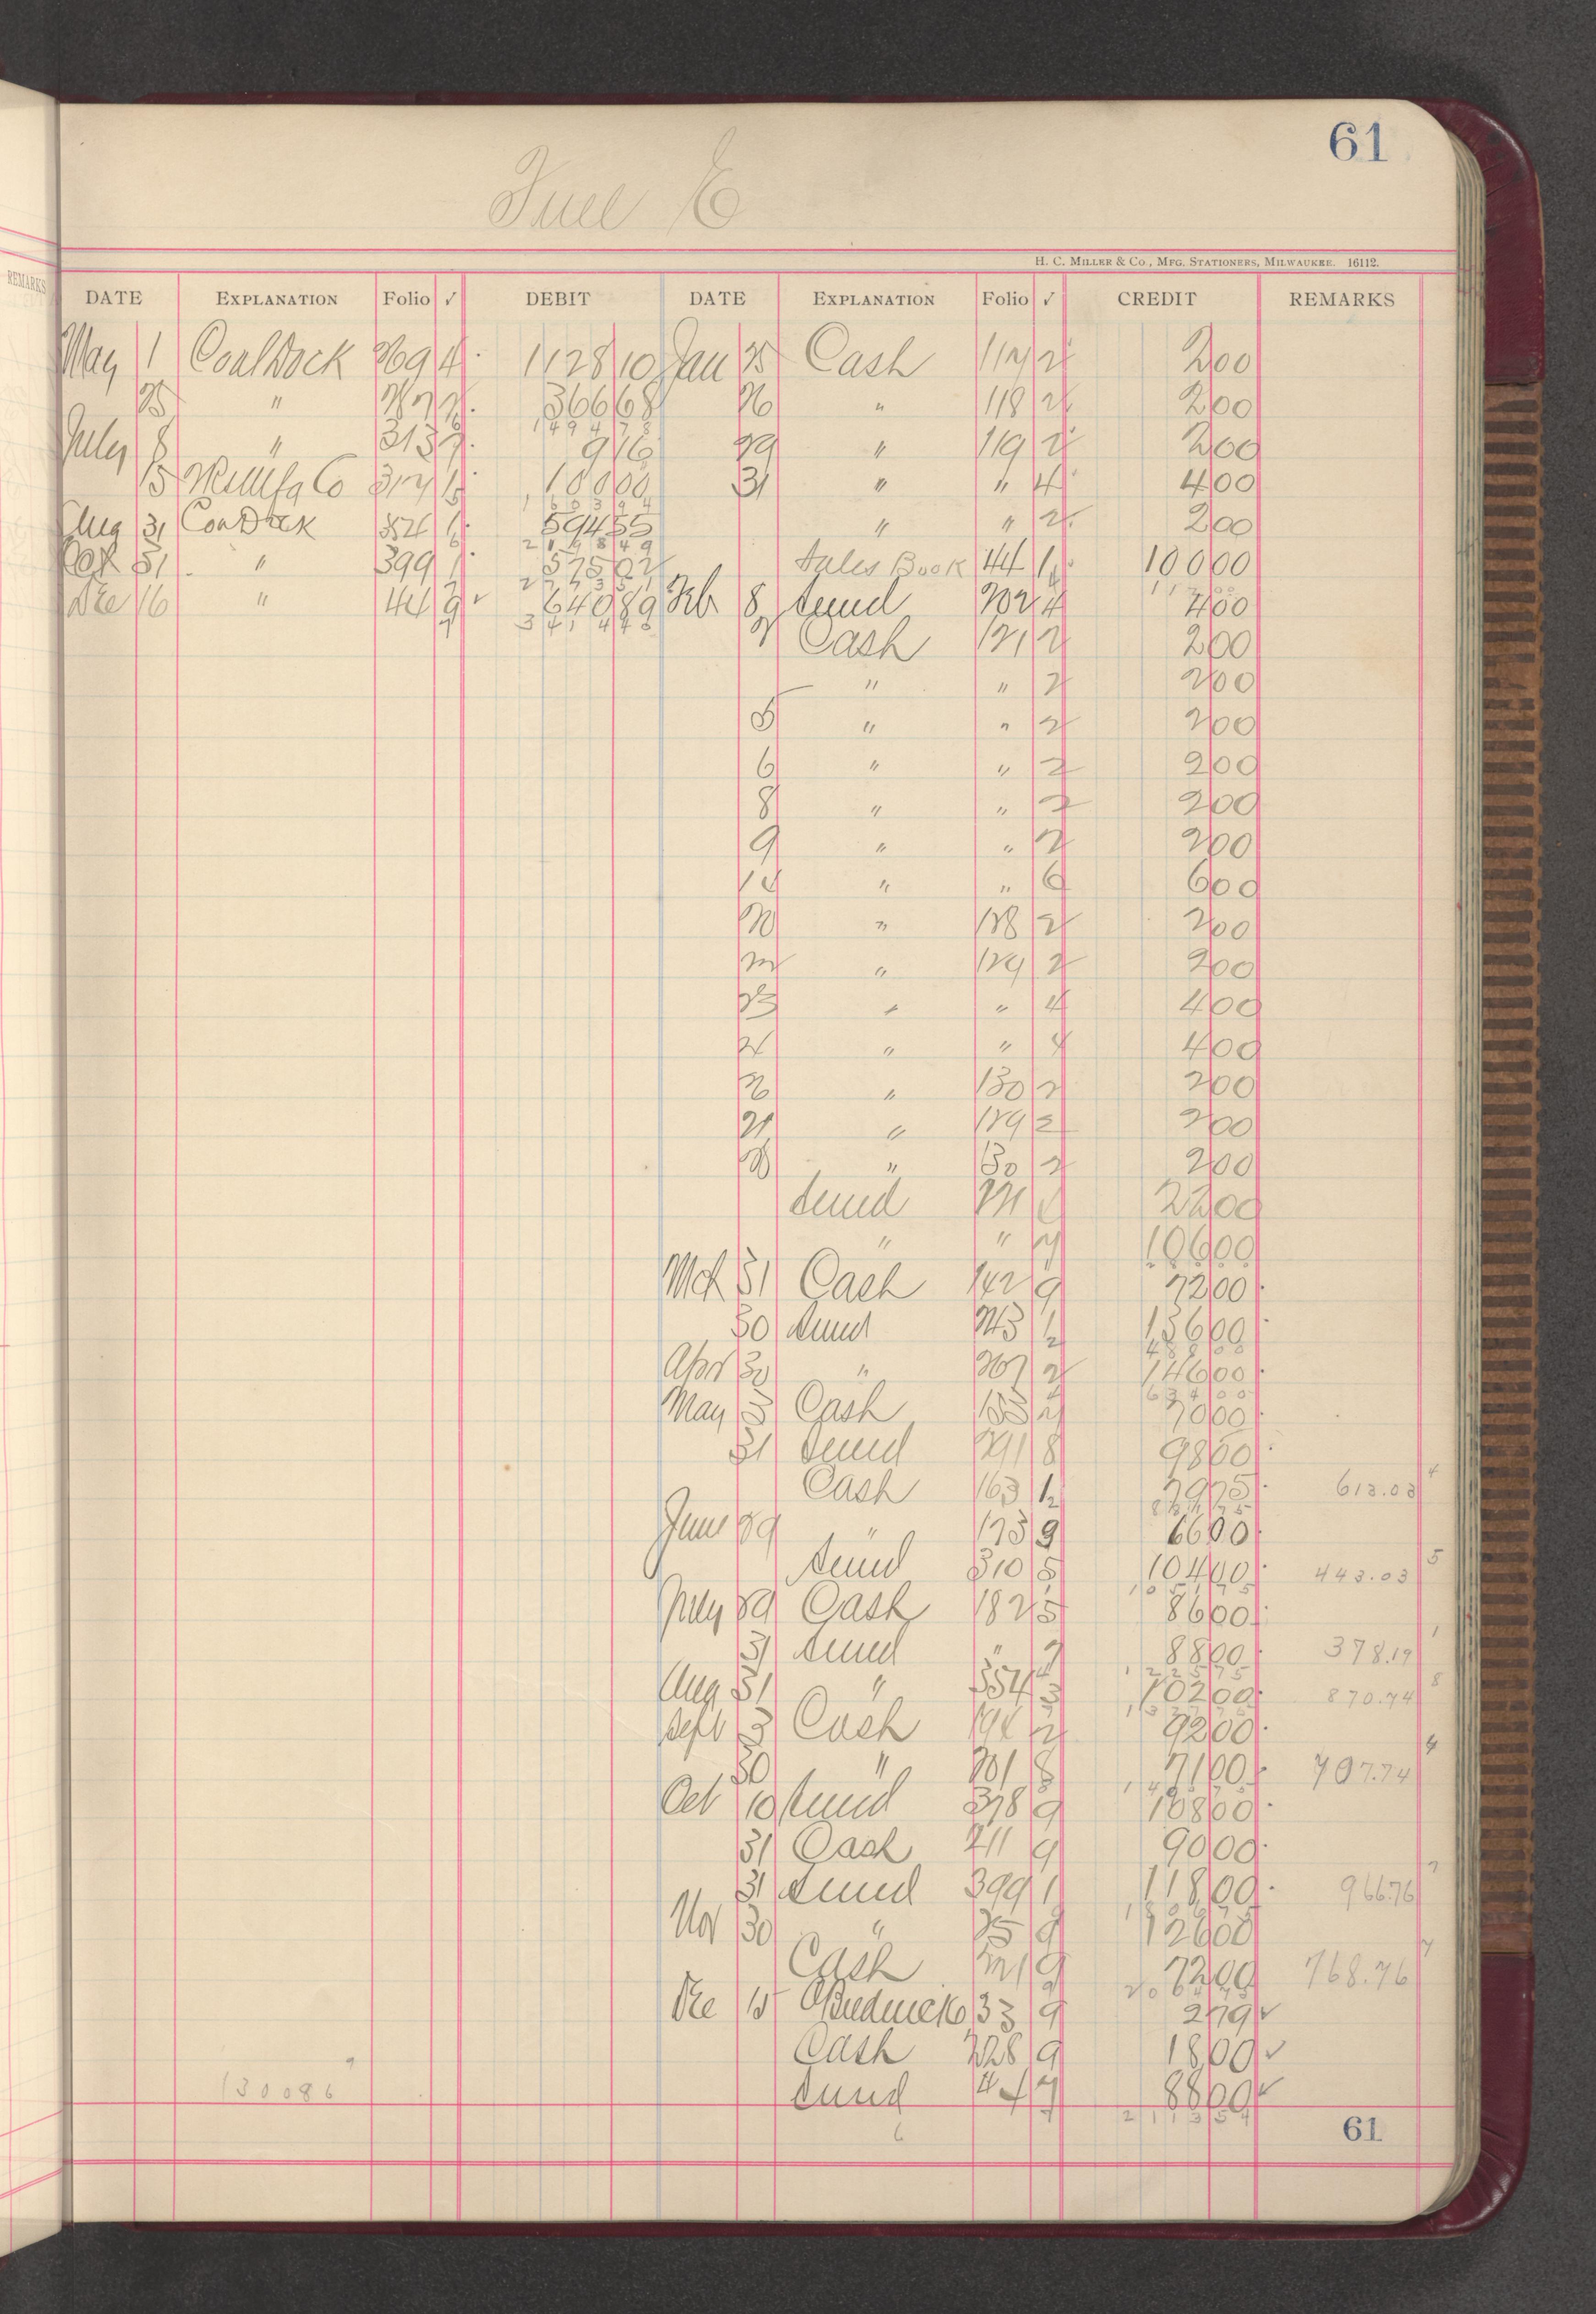 61
Fuel E
H. C. Miller & Co., Mfg. Stationers, Milwaukee. 16112.
REMARKS
DATE EXPLANATION Folio √ DEBIT DATE EXPLANATION Folio √ CREDIT REMARKS
May 1 Coal Dock 269 4 1128 10 Jan 25 Cash 117 2 2 00
25 " 366 68 26 " 118 2 2 00
1494 78
July 8 " 313 7 9 16 29 " 119 2 2 00
15 Co 317 100 00 31 " " 4 4 00
1603 94
Aug 31 Coal Dock 352 1 594 55 " " 2 2 00
2198 49
Oct 31 " 399 1 575 02 Sales Book 44 1 100 00
2773 51
Dec 16 " 441 9 640 89 Feb 8 Sund 202 4 4 00
3414 40
2 Cash 121 2 2 00
" " 2 2 00
5 " " 2 2 00
6 " " 2 2 00
8 " " 2 2 00
9 " " 2 2 00
" " 6 6 00
20 " 128 2 2 00
22 " 129 2 2 00
23 " " 4 4 00
24 " " 4 4 00
26 " 130 2 2 00
27 " 129 2 2 00
28 " 130 2 2 00
Sund 221 22 00
" " 106 00
Mch 31 Cash 142 9 72 00
30 Sund 243 136 00
488 00
Apr 30 " 267 2 146 00
634 00
May 3 Cash 153 70 00
31 Sund 291 8 98 00
Cash 163 1 613.03 4
June 29 " 173 9 66 00
Sund 310 5 104 00 443.03 5
July 29 Cash 182 5 86 00
31 Sund " 88 00 378.19 1
1225 75
Aug 31 " 354 3 102 00 870.74 8
Sept 3 Cash 194 2 92 00
30 " 201 8 71 00 707.74 4
Oct 10 Sund 378 9 108 00
31 Cash 211 9 90 00
31 Sund 399 1 118 00 966.76 7
Nov 30 " 25 9 126 00
Cash 221 9 72 00 768.76 7
Dec 15 33 9 2 79
Cash 228 9 18 00
Sund 88 00
130086
2113 54
61